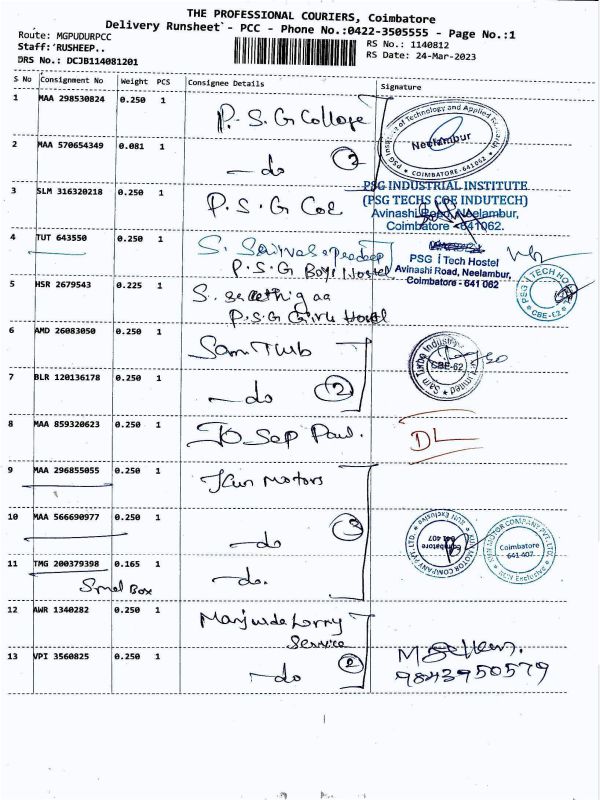 THE PROFESSIONAL COURIERS, Coimbatore
Delivery Runsheet - PCC - Phone No.:0422-3505555 - Page No.:1
Route: MGPUDURPCC
Staff: RUSHEEP..
DRS No.: DCJB114081201
RS No.: 1140812
RS Date: 24-Mar-2023
S No Consignment No Weight PCS Consignee Details Signature
1 MAA 298530824 0.250 1 P.S.G College
2 MAA 570654349 0.081 1 do 2
PSG Institute of Technology and Applied Research
Neelambur
COIMBATORE-641062
3 SLM 316320218 0.250 1 P.S.G CoE
PSG INDUSTRIAL INSTITUTE
(PSG TECHS COE INDUTECH)
Avinashi Road, Neelambur,
Coimbatore - 641062.
4 TUT 643550 0.250 1
P.S.G Boys Hostel
PSG iTech Hostel
Avinashi Road, Neelambur,
Coimbatore - 641 062
5 HSR 2679543 0.225 1
P.S.G Girls Hostel
PSG ITECH HOSTEL
CBE-62
6 AMD 26083050 0.250 1 Sam Turb
7 BLR 120136178 0.250 1 do 2
Sam Turbo Industry Limited
CBE-62
8 MAA 859320623 0.250 1 DL
9 MAA 296855055 0.250 1 Kun Motors
10 MAA 566690977 0.250 1 do 3
11 TMG 200379398 0.165 1 do.
Smal Box
KUN MOTOR COMPANY PVT. LTD.
SUN Exclusive
Coimbatore
641 407
KUN MOTOR COMPANY PVT. LTD.
Coimbatore
641 407
SUN Exclusive
12 AWR 1340282 0.250 1 Lorry
Service
13 VPI 3560825 0.250 1 do 2
9843950579